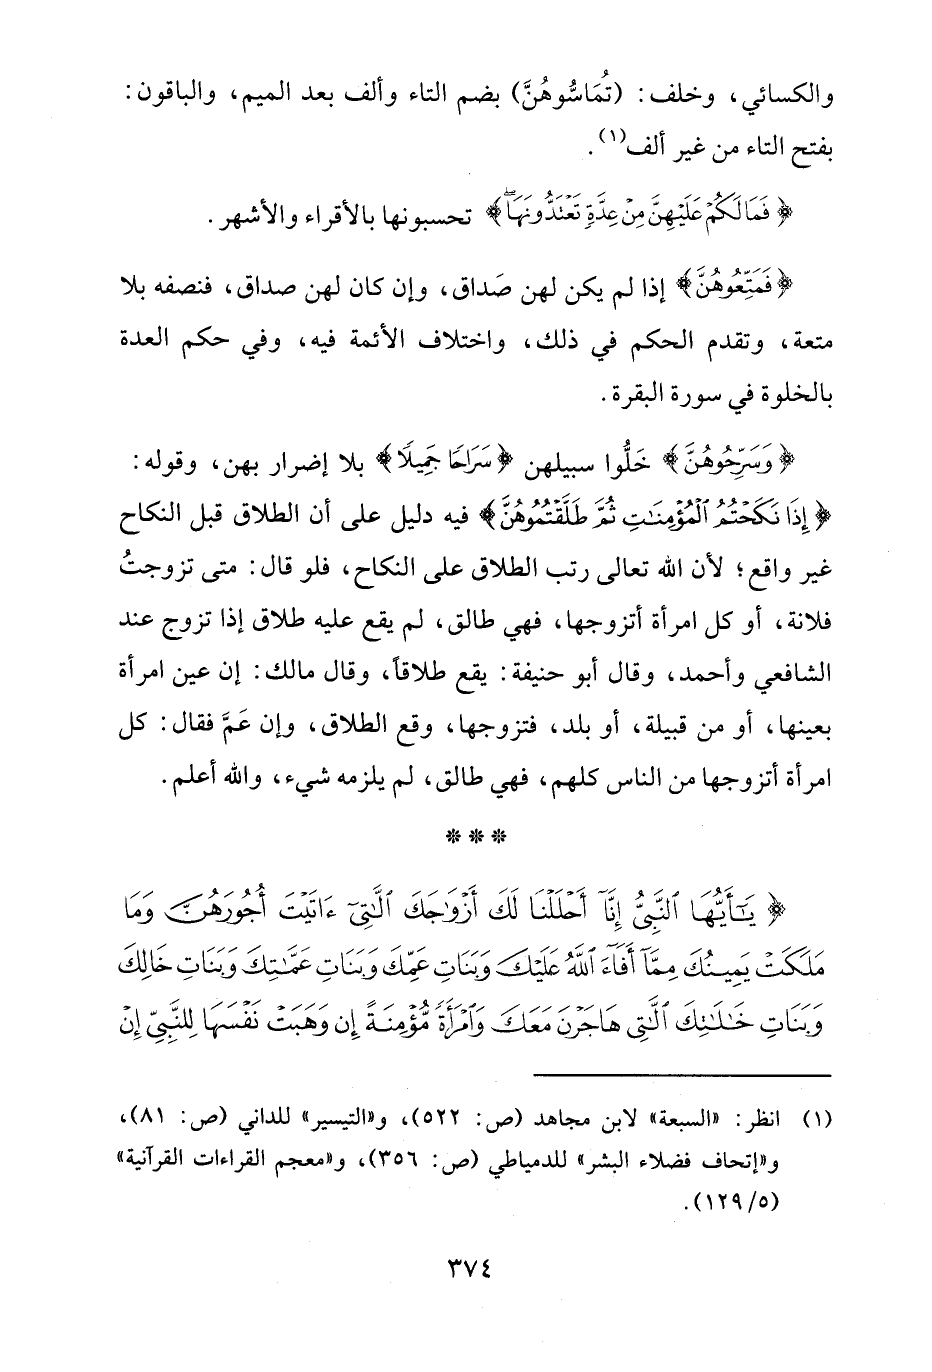 والكسائي، وخلف: (تُمَاسُّوهُنَّ) بضم التاء وألف بعد الميم، والباقون:
بفتح التاء من غير ألف(١).
﴿فَمَا لَكُمْ عَلَيْهِنَّ مِنْ عِدَّةٍ تَعْتَدُّونَهَا ۖ﴾ تحسبونها بالأقراء والأشهر.
﴿فَمَتِّعُوهُنَّ﴾ إذا لم يكن لهن صَداق، وإن كان لهن صداق، فنصفه بلا
متعة، وتقدم الحكم في ذلك، واختلاف الأئمة فيه، وفي حكم العدة
بالخلوة في سورة البقرة.
﴿وَسَرِّحُوهُنَّ﴾ خَلُّوا سبيلهن ﴿سَرَاحًا جَمِيلًا﴾ بلا إضرار بهن، وقوله:
﴿إِذَا نَكَحْتُمُ ٱلْمُؤْمِنَٰتِ ثُمَّ طَلَّقْتُمُوهُنَّ﴾ فيه دليل على أن الطلاق قبل النكاح
غير واقع؛ لأن الله تعالى رتب الطلاق على النكاح، فلو قال: متى تزوجتُ
فلانة، أو كل امرأة أتزوجها، فهي طالق، لم يقع عليه طلاق إذا تزوج عند
الشافعي وأحمد، وقال أبو حنيفة: يقع طلاقاً، وقال مالك: إن عين امرأة
بعينها، أو من قبيلة، أو بلد، فتزوجها، وقع الطلاق، وإن عَمَّ فقال: كل
امرأة أتزوجها من الناس كلهم، فهي طالق، لم يلزمه شيء، والله أعلم.
***
﴿يَٰٓأَيُّهَا ٱلنَّبِىُّ إِنَّآ أَحْلَلْنَا لَكَ أَزْوَٰجَكَ ٱلَّٰتِىٓ ءَاتَيْتَ أُجُورَهُنَّ وَمَا
مَلَكَتْ يَمِينُكَ مِمَّآ أَفَآءَ ٱللَّهُ عَلَيْكَ وَبَنَاتِ عَمِّكَ وَبَنَاتِ عَمَّٰتِكَ وَبَنَاتِ خَالِكَ
وَبَنَاتِ خَٰلَٰتِكَ ٱلَّٰتِى هَاجَرْنَ مَعَكَ وَٱمْرَأَةً مُّؤْمِنَةً إِن وَهَبَتْ نَفْسَهَا لِلنَّبِىِّ إِنْ
(١) انظر: «السبعة» لابن مجاهد (ص: ٥٢٢)، و«التيسير» للداني (ص: ٨١)،
و«إتحاف فضلاء البشر» للدمياطي (ص: ٣٥٦)، و«معجم القراءات القرآنية»
(٥/ ١٢٩).
٣٧٤